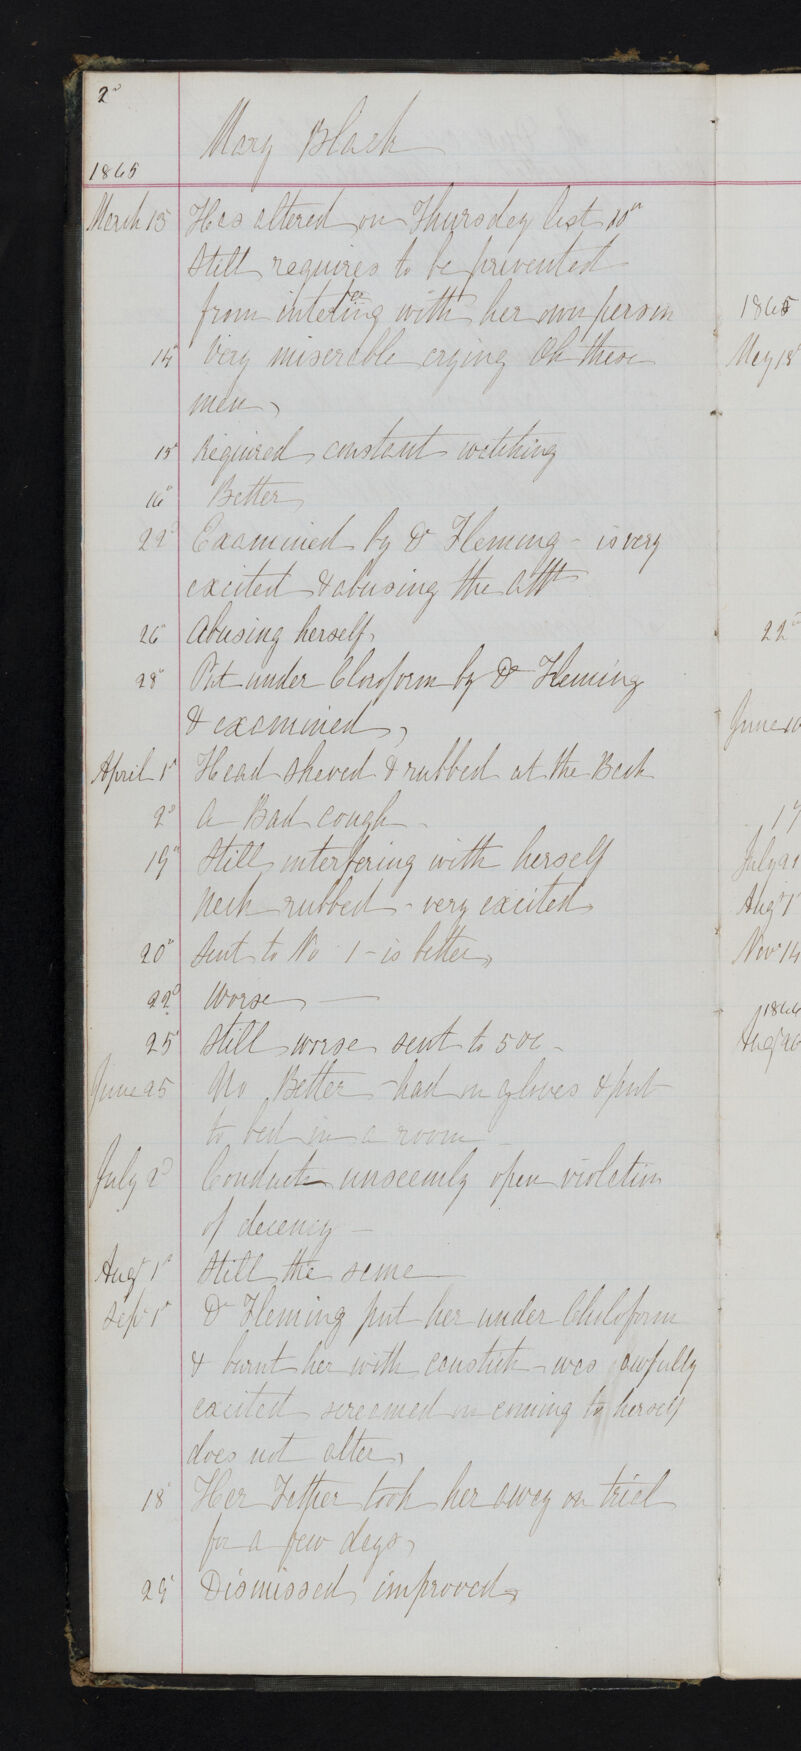 2
Mary Black
1865
March 13 Has altered on Thursday last 10th
still requires to be privented
from intefering with her own person
14 Very miserable crying Oh these
men
15 Required constant watching
16 Better
22d Examined by Dr Fleming - is very
excited & abusing the Attt
26 Abusing herself
28 Put under Cloroform by Dr Fleming
& examined
April 1st Head shaved & rubbed at the Back
2d A Bad cough
19th Still interfering with herself
Neck rubbed - very excited
20th Sent to No 1 - is better
22d Worse
25 Still worse sent to 5
June 25 No Better - had on gloves & put
to bed in a room
July 2d Conduct unseemly open violation
of decency -
Augt 1st Still the same
Sept 1st Dr Fleming put her under Chloform
& burnt her with caustick - was awfully
excited screamed on coming to herself
does not alter
18 Her Father took her away on trial
for a few days
29 Dismissed improved
1865
May 18
22d
June 10
17
July 21
Augt 1
Novr 14
1866
Augt 26